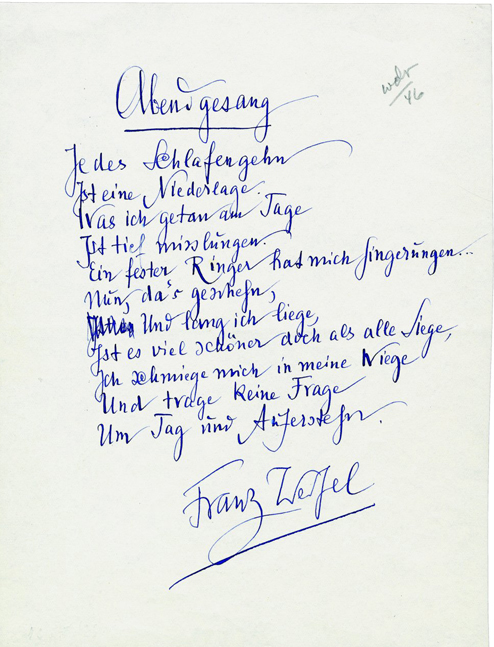 46
Abendgesang
Jedes Schlafengehn
Ist eine Niederlage.
Was ich getan am Tage
Ist tief misslungen.
Ein fester Ringer hat mich hingerungen...
Nun, da's geschehn,
Und lang ich liege,
Ist es viel schöner doch als alle Siege,
Ich schmiege mich in meine Wiege
Und trage keine Frage
Um Tag und Auferstehn.
Franz Werfel